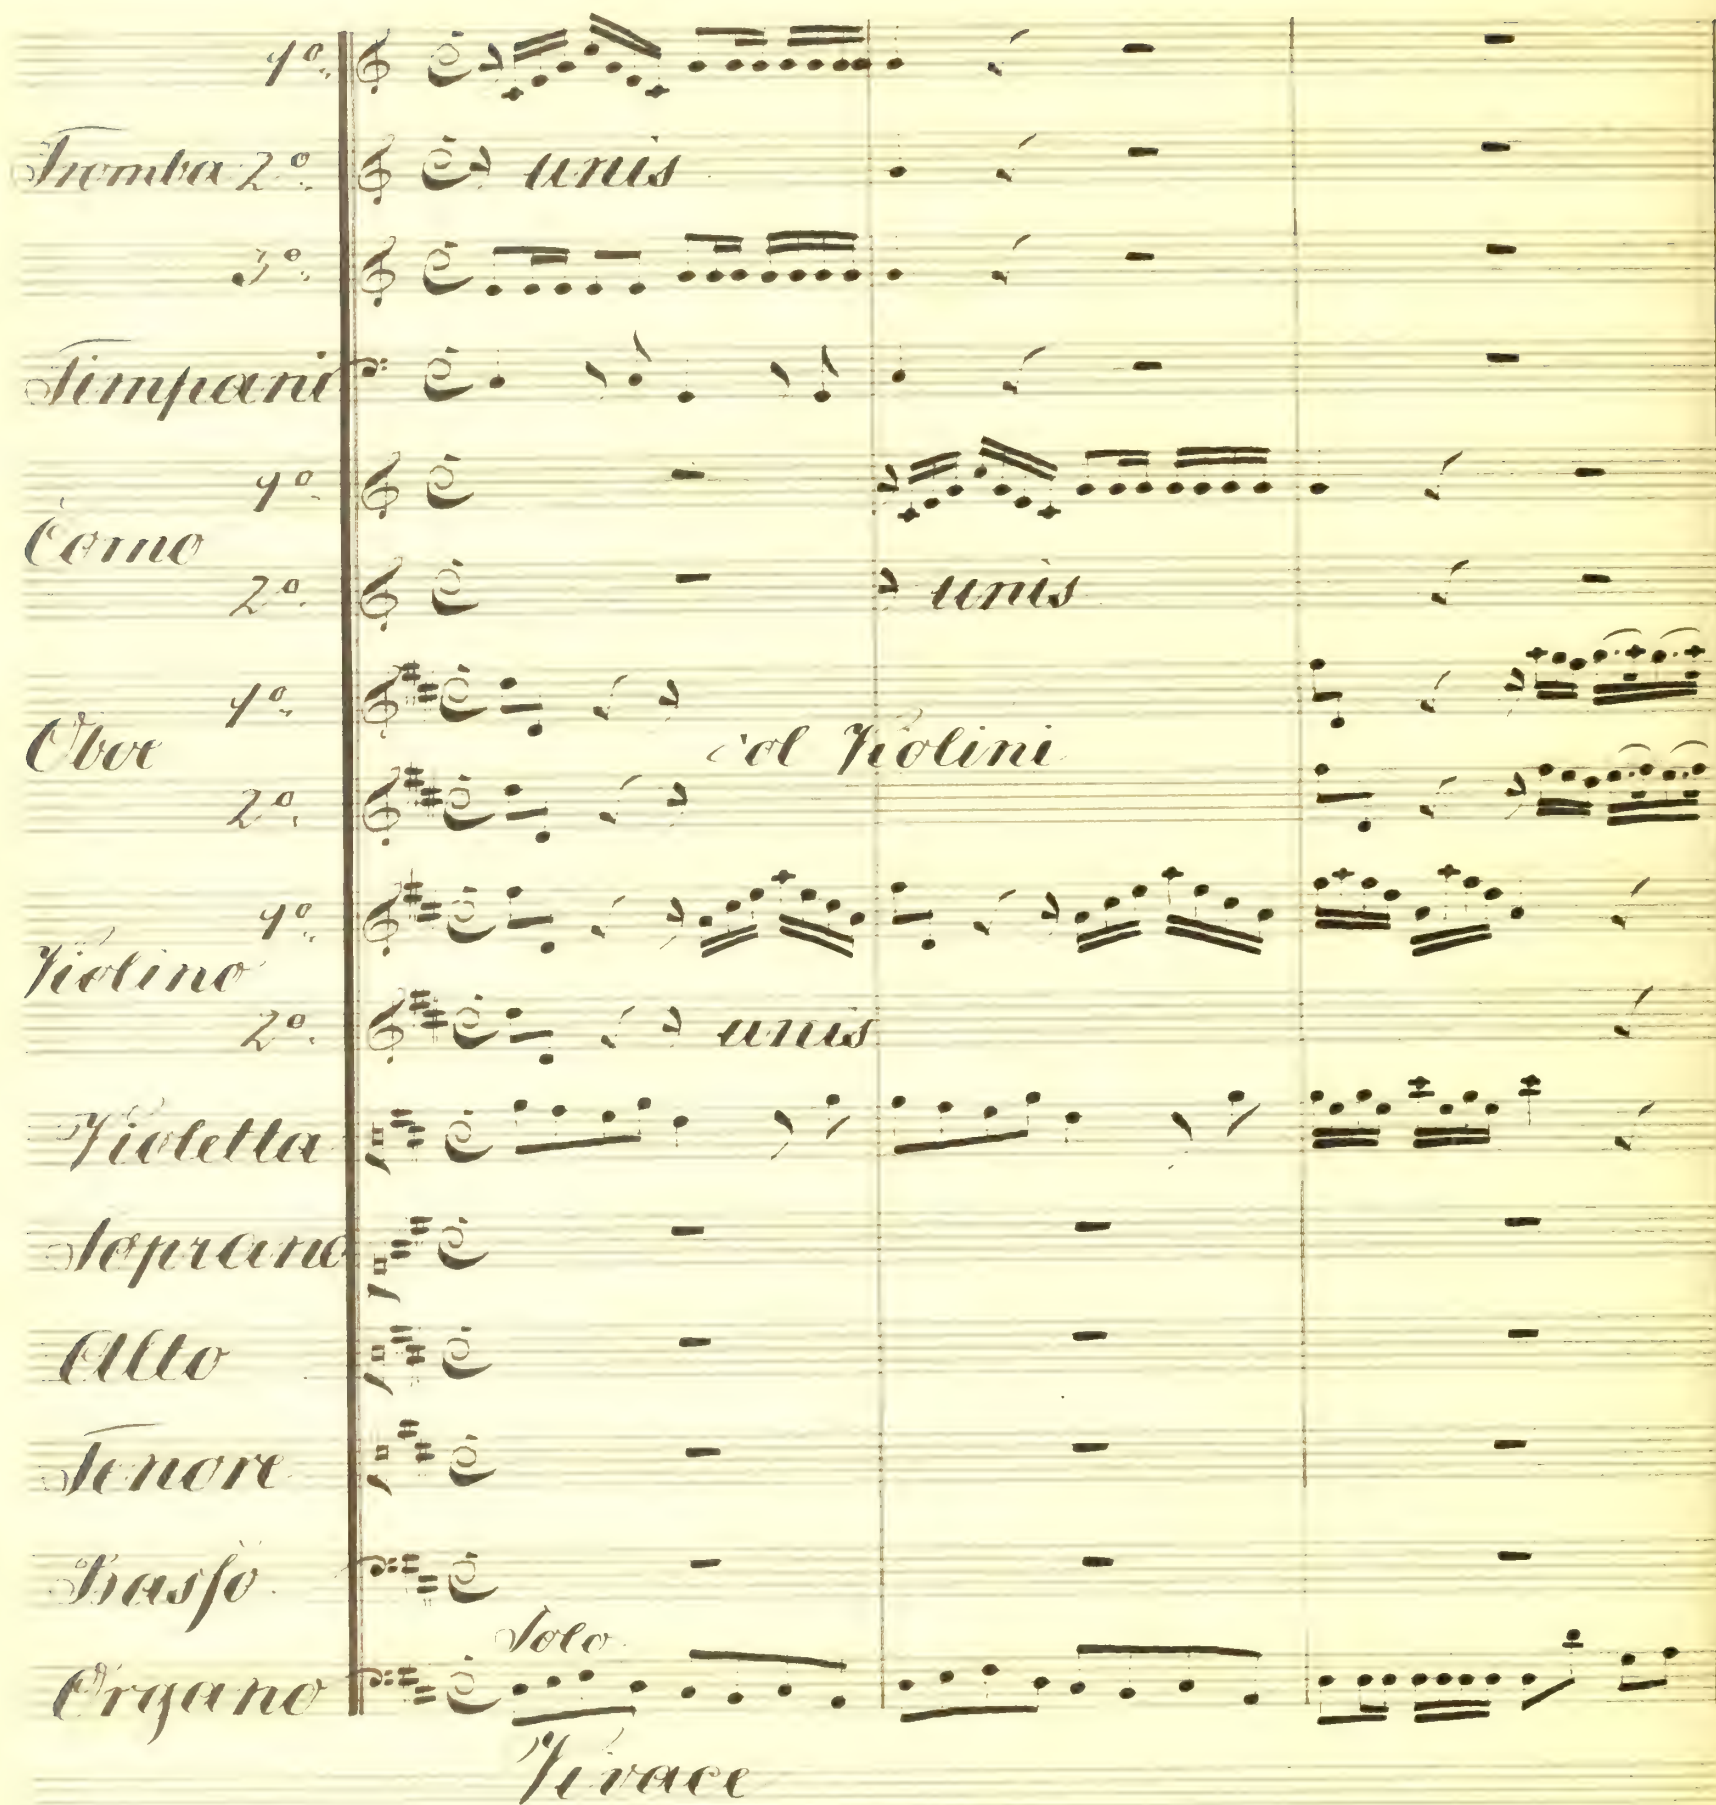 1º.
Tromba 2º. unis
3º.
Timpani
1º.
Corno
2º. unis
1º.
Oboe col Violini
2º.
1º.
Violino
2º. unis
Violetta
Soprano
Alto
Tenore
Basso
Solo
Organo
Vivace